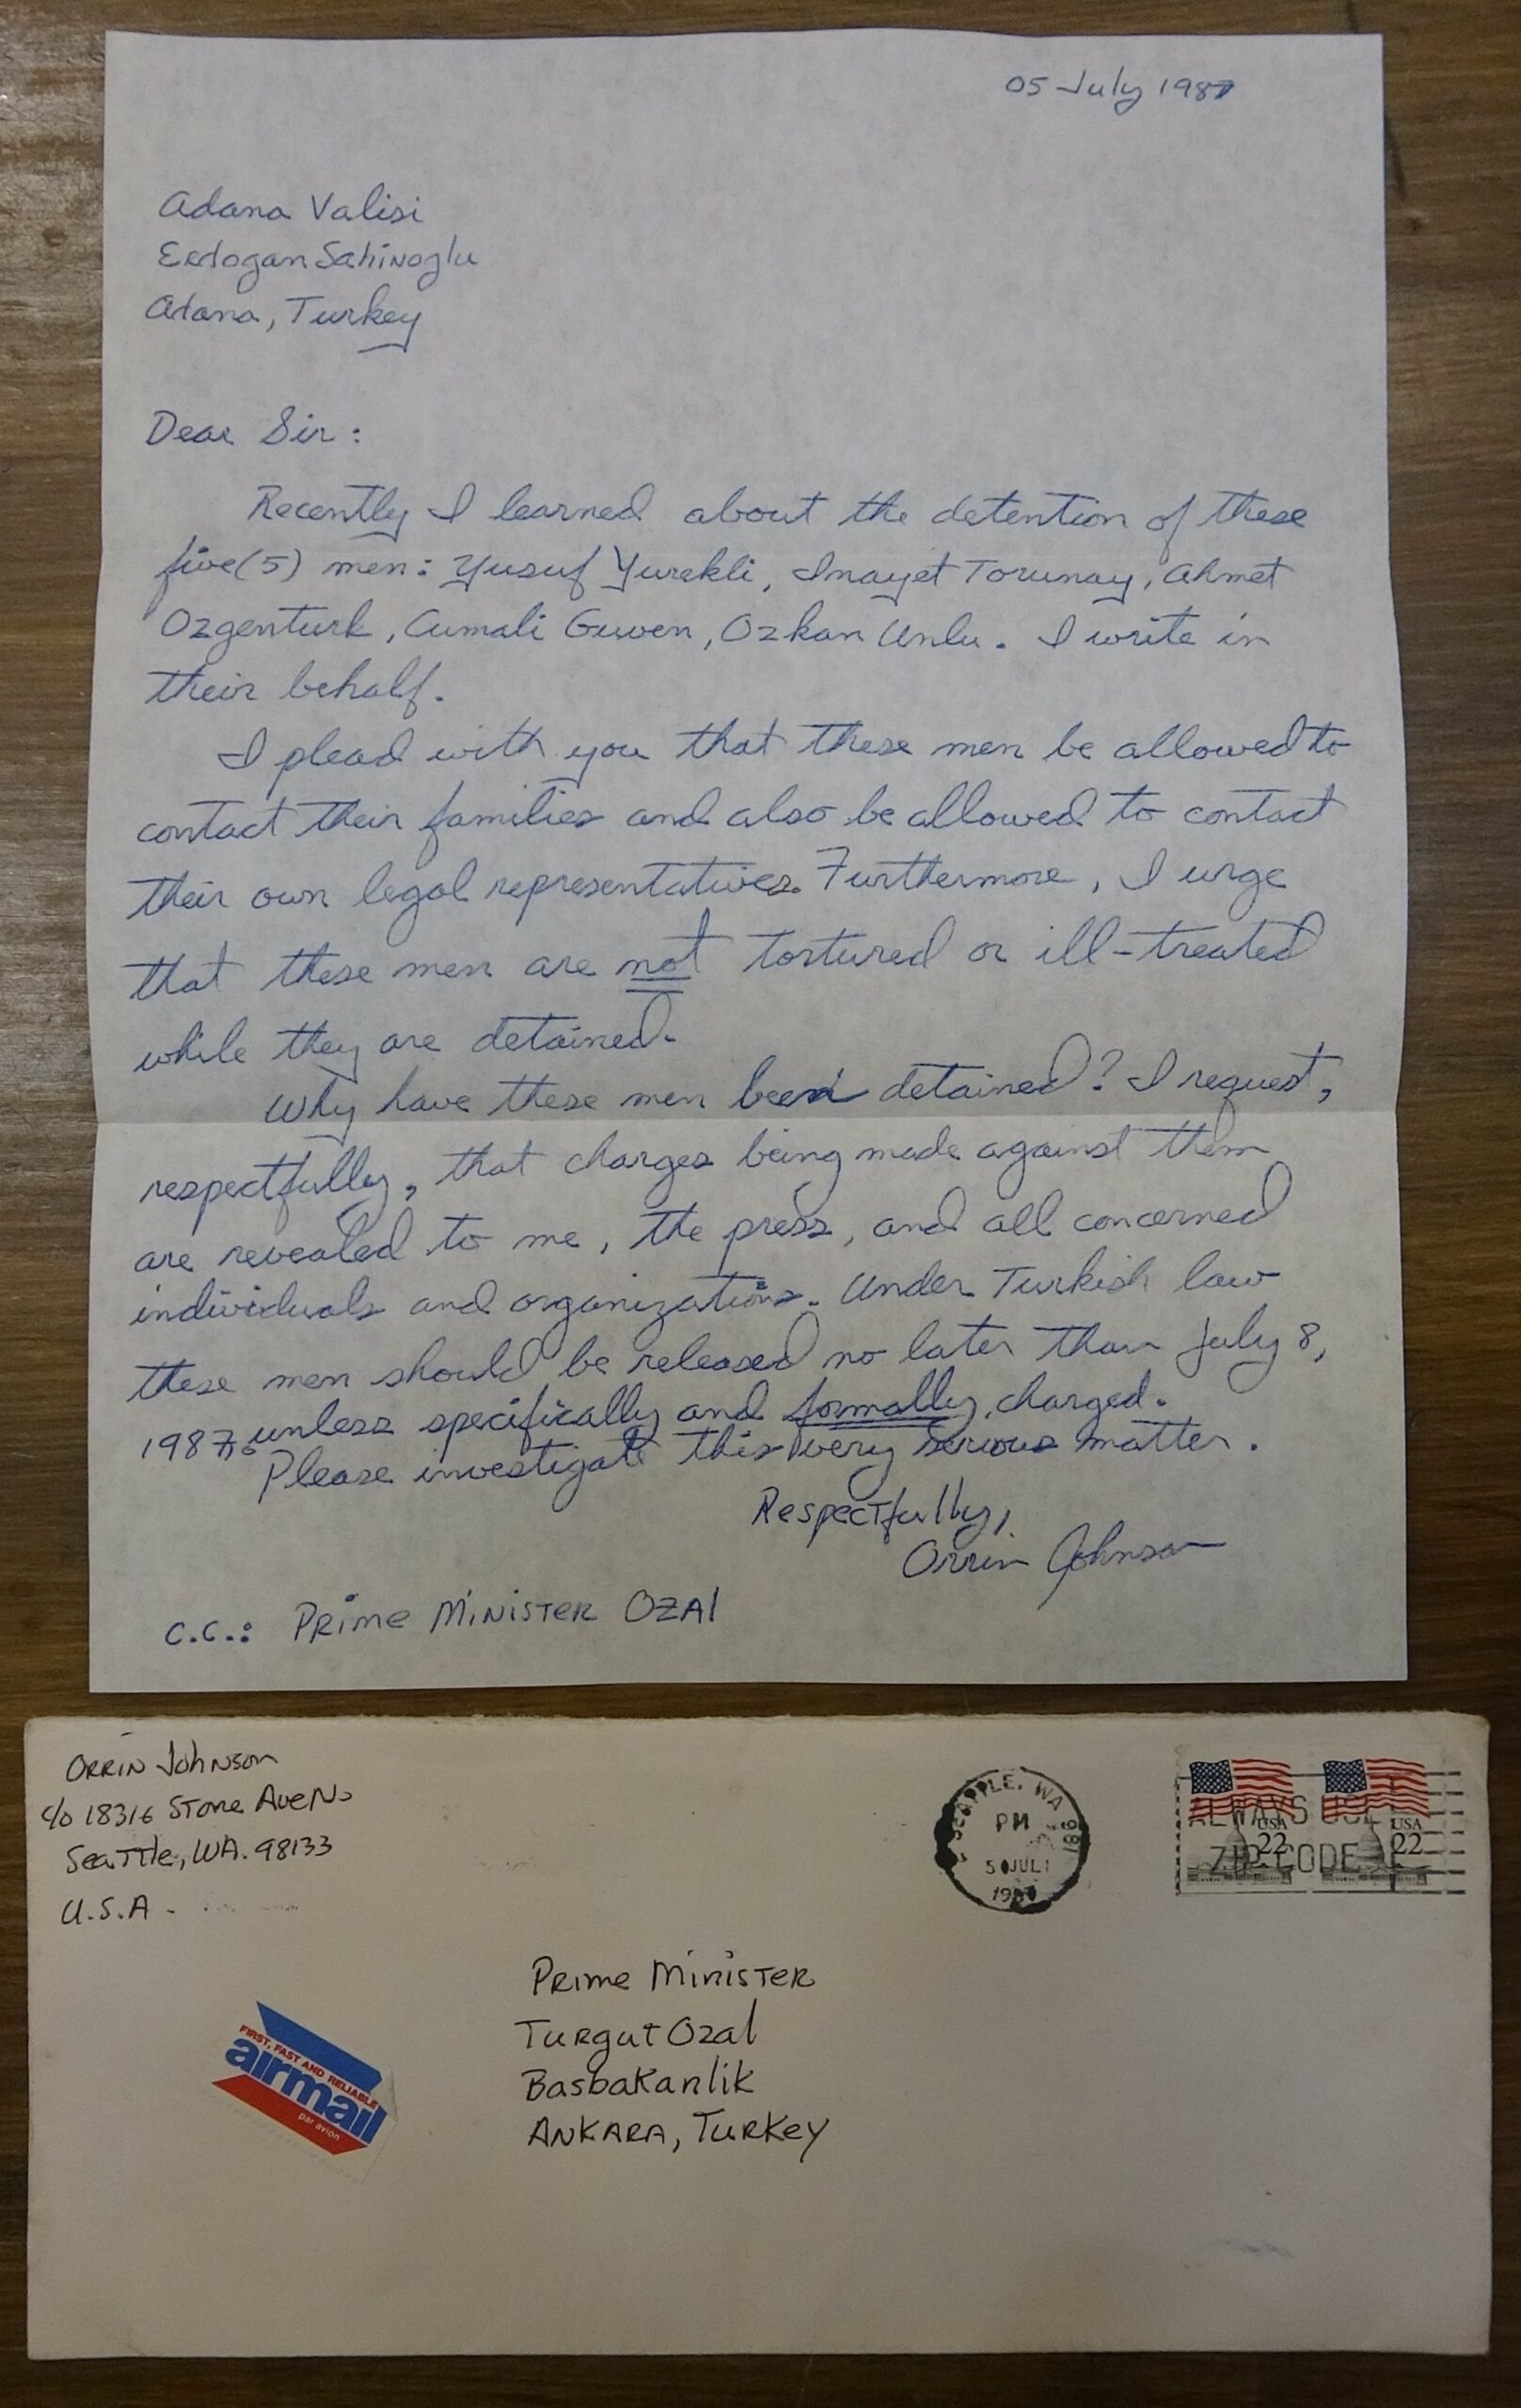 05 July 1987
Adana Valisi
Erdogan Sahinoglu
Adana, Turkey
Dear Sir:
Recently I learned about the detention of these
five(5) men: Yusuf Yurekli, Inayet Torunay, Ahmet
Ozgenturk, Cumali Guven, Ozkan Unlu. I write in
their behalf.
I plead with you that these men be allowed to
contact their families and also be allowed to contact
their own legal representatives. Furthermore, I urge
that these men are not tortured or ill-treated
while they are detained.
Why have these men been detained? I request,
respectfully, that charges being made against them
are revealed to me, the press, and all concerned
individuals and organizations. Under Turkish law
these men should be released no later than July 8,
1987, unless specifically and formally charged.
Please investigate this very serious matter.
Respectfully,
Orrin Johnson
C.C.: Prime Minister OZAl
Orrin Johnson
c/o 18316 Stone Ave No
Seattle, WA. 98133
U.S.A.
SEATTLE, WA 981
PM
5 JUL
1987
ALWAYS USE
ZIP CODE
USA
22
USA
22
FIRST, FAST AND RELIABLE
airmail
par avion
Prime Minister
Turgut Ozal
Basbakanlik
ANKARA, TURKEY